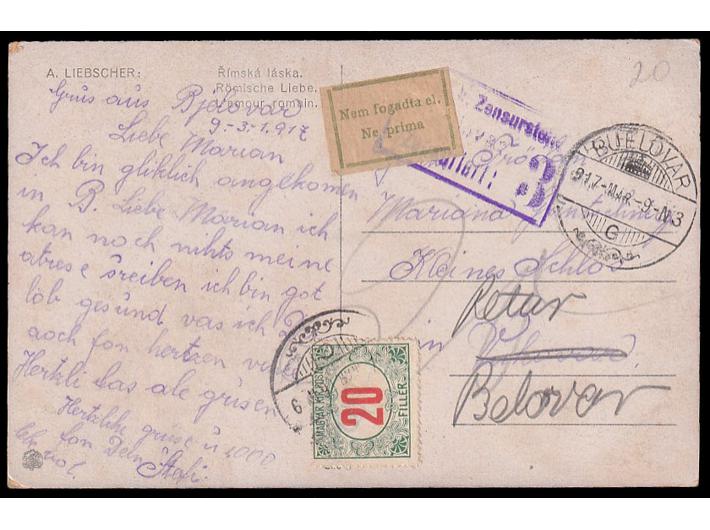 A. LIEBSCHER:
Římská láska.
Römische Liebe.
L'amour romain.
Grüs aus Bjelovar
9-3.1.917
Liebe Marian
Ich bin gliklich angekomen
in B. Liebe Marian ich
kan noch nihts meine
atrese sreiben ich bin got
lob gesund vas ich
aoch fon hertzen
Herkli las ale grüsen
Hertzlihe grüse u 1000
fon Dein
Stefi.
Nem fogadta el.
Ne prima
Zensurstelle
3
20
BJELOVAR
917-MAR.-9-N3
G
Mariana
Kleines Schlos
in
Retur
Belovar
MAGYAR KIR. POSTA
20
FILLÉR